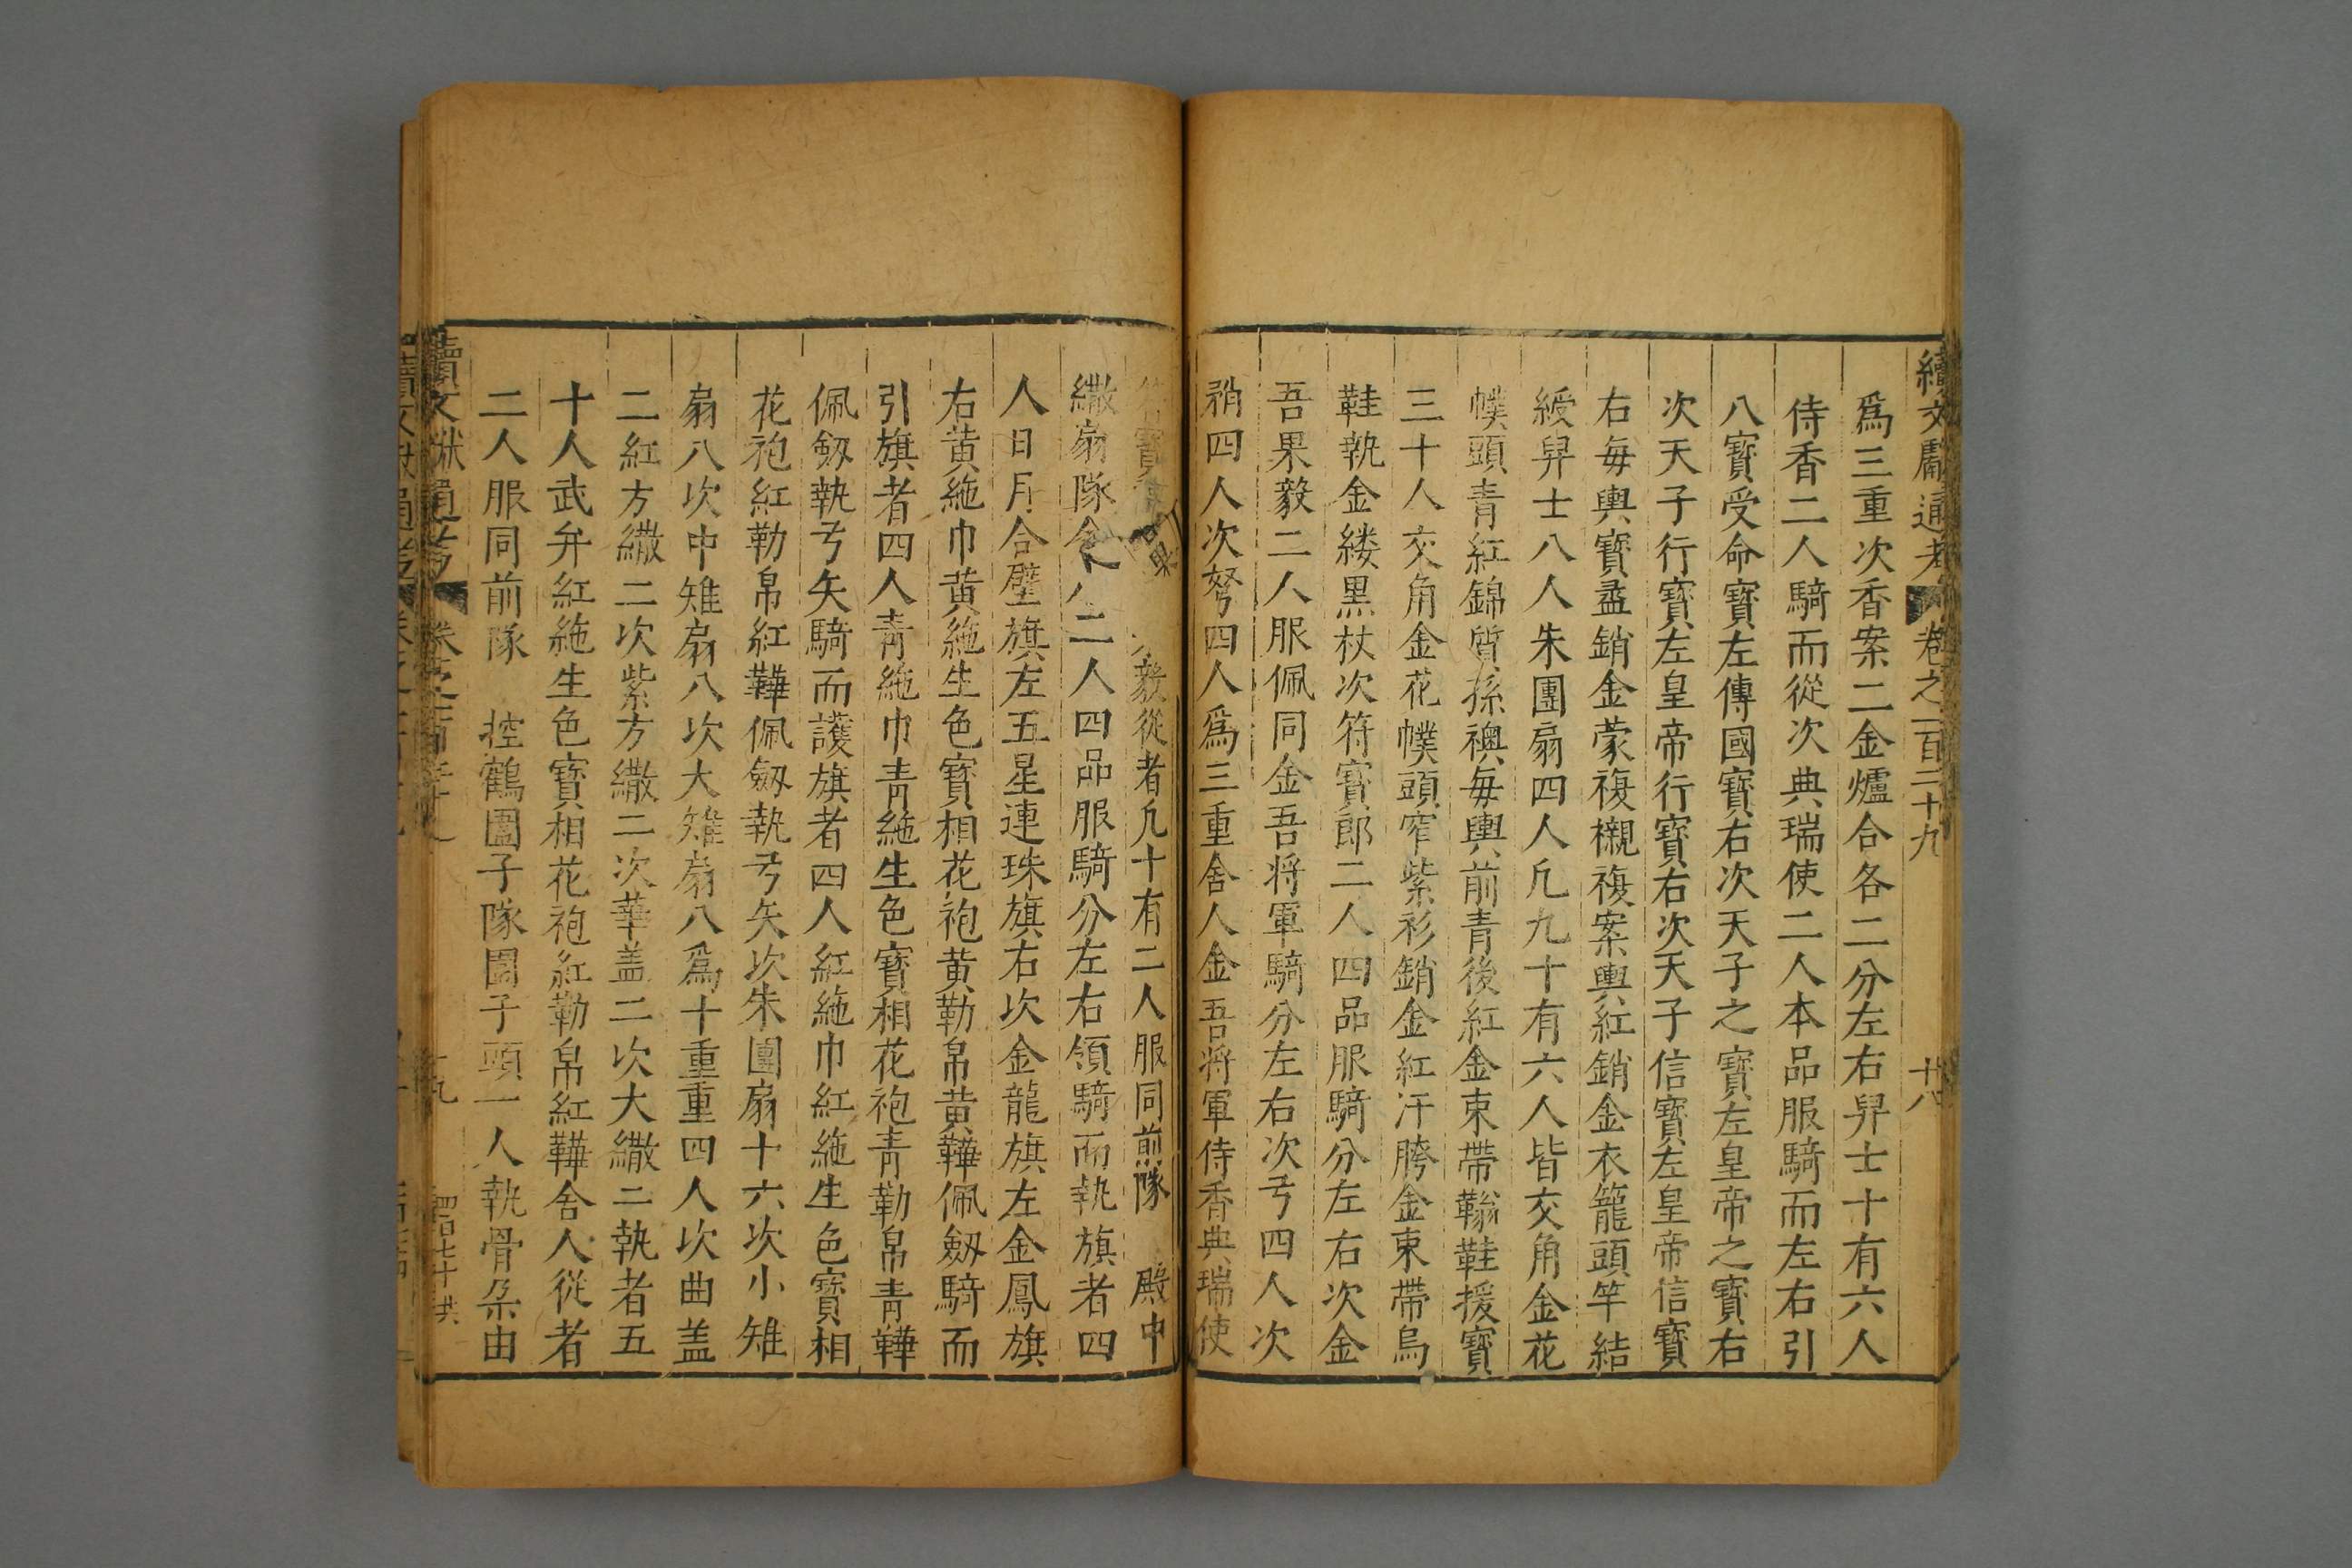 續文獻通考 卷之一百三十九 十八
爲三重次香案二金爐合各二分左右舁士十有六人
侍香二人騎而從次典瑞使二人本品服騎而左右引
八寳受命寳左傳國寳右次天子之寳左皇帝之寳右
次天子行寳左皇帝行寳右次天子信寳左皇帝信寳
右每輿寳盝銷金蒙複襯複案輿紅銷金衣籠頭竿結
綬舁士八人朱團扇四人凡九十有六人皆交角金花
幞頭青紅錦質孫襖每輿前青後紅金束帶䩺鞋援寳
三十人交角金花幞頭窄紫衫銷金紅汗胯金束帶烏
鞋執金縷黑杖次符寳郎二人四品服騎分左右次金
吾果毅二人服佩同金吾将軍騎分左右次弓四人次
矟四人次弩四人爲三重舍人金吾将軍侍香典瑞使
符寳 果毅從者凡十有二人服同前隊 殿中
繖扇隊舍人二人四品服騎分左右領騎而執旗者四
人日月合璧旗左五星連珠旗右次金龍旗左金鳳旗
右黄絁巾黄絁生色寳相花袍黄勒帛黄鞾佩劔騎而
引旗者四人青絁巾青絁生色寳相花袍青勒帛青鞾
佩劔執弓矢騎而護旗者四人紅絁巾紅絁生色寳相
花袍紅勒帛紅鞾佩劔執弓矢次朱團扇十六次小雉
扇八次中雉扇八次大雉扇八爲十重重四人次曲盖
二紅方繖二次紫方繖二次華盖二次大繖二執者五
十人武弁紅絁生色寳相花袍紅勒帛紅鞾舍人從者
二人服同前隊 控鶴圍子隊圍子頭一人執骨朶由
續文獻通考 十九